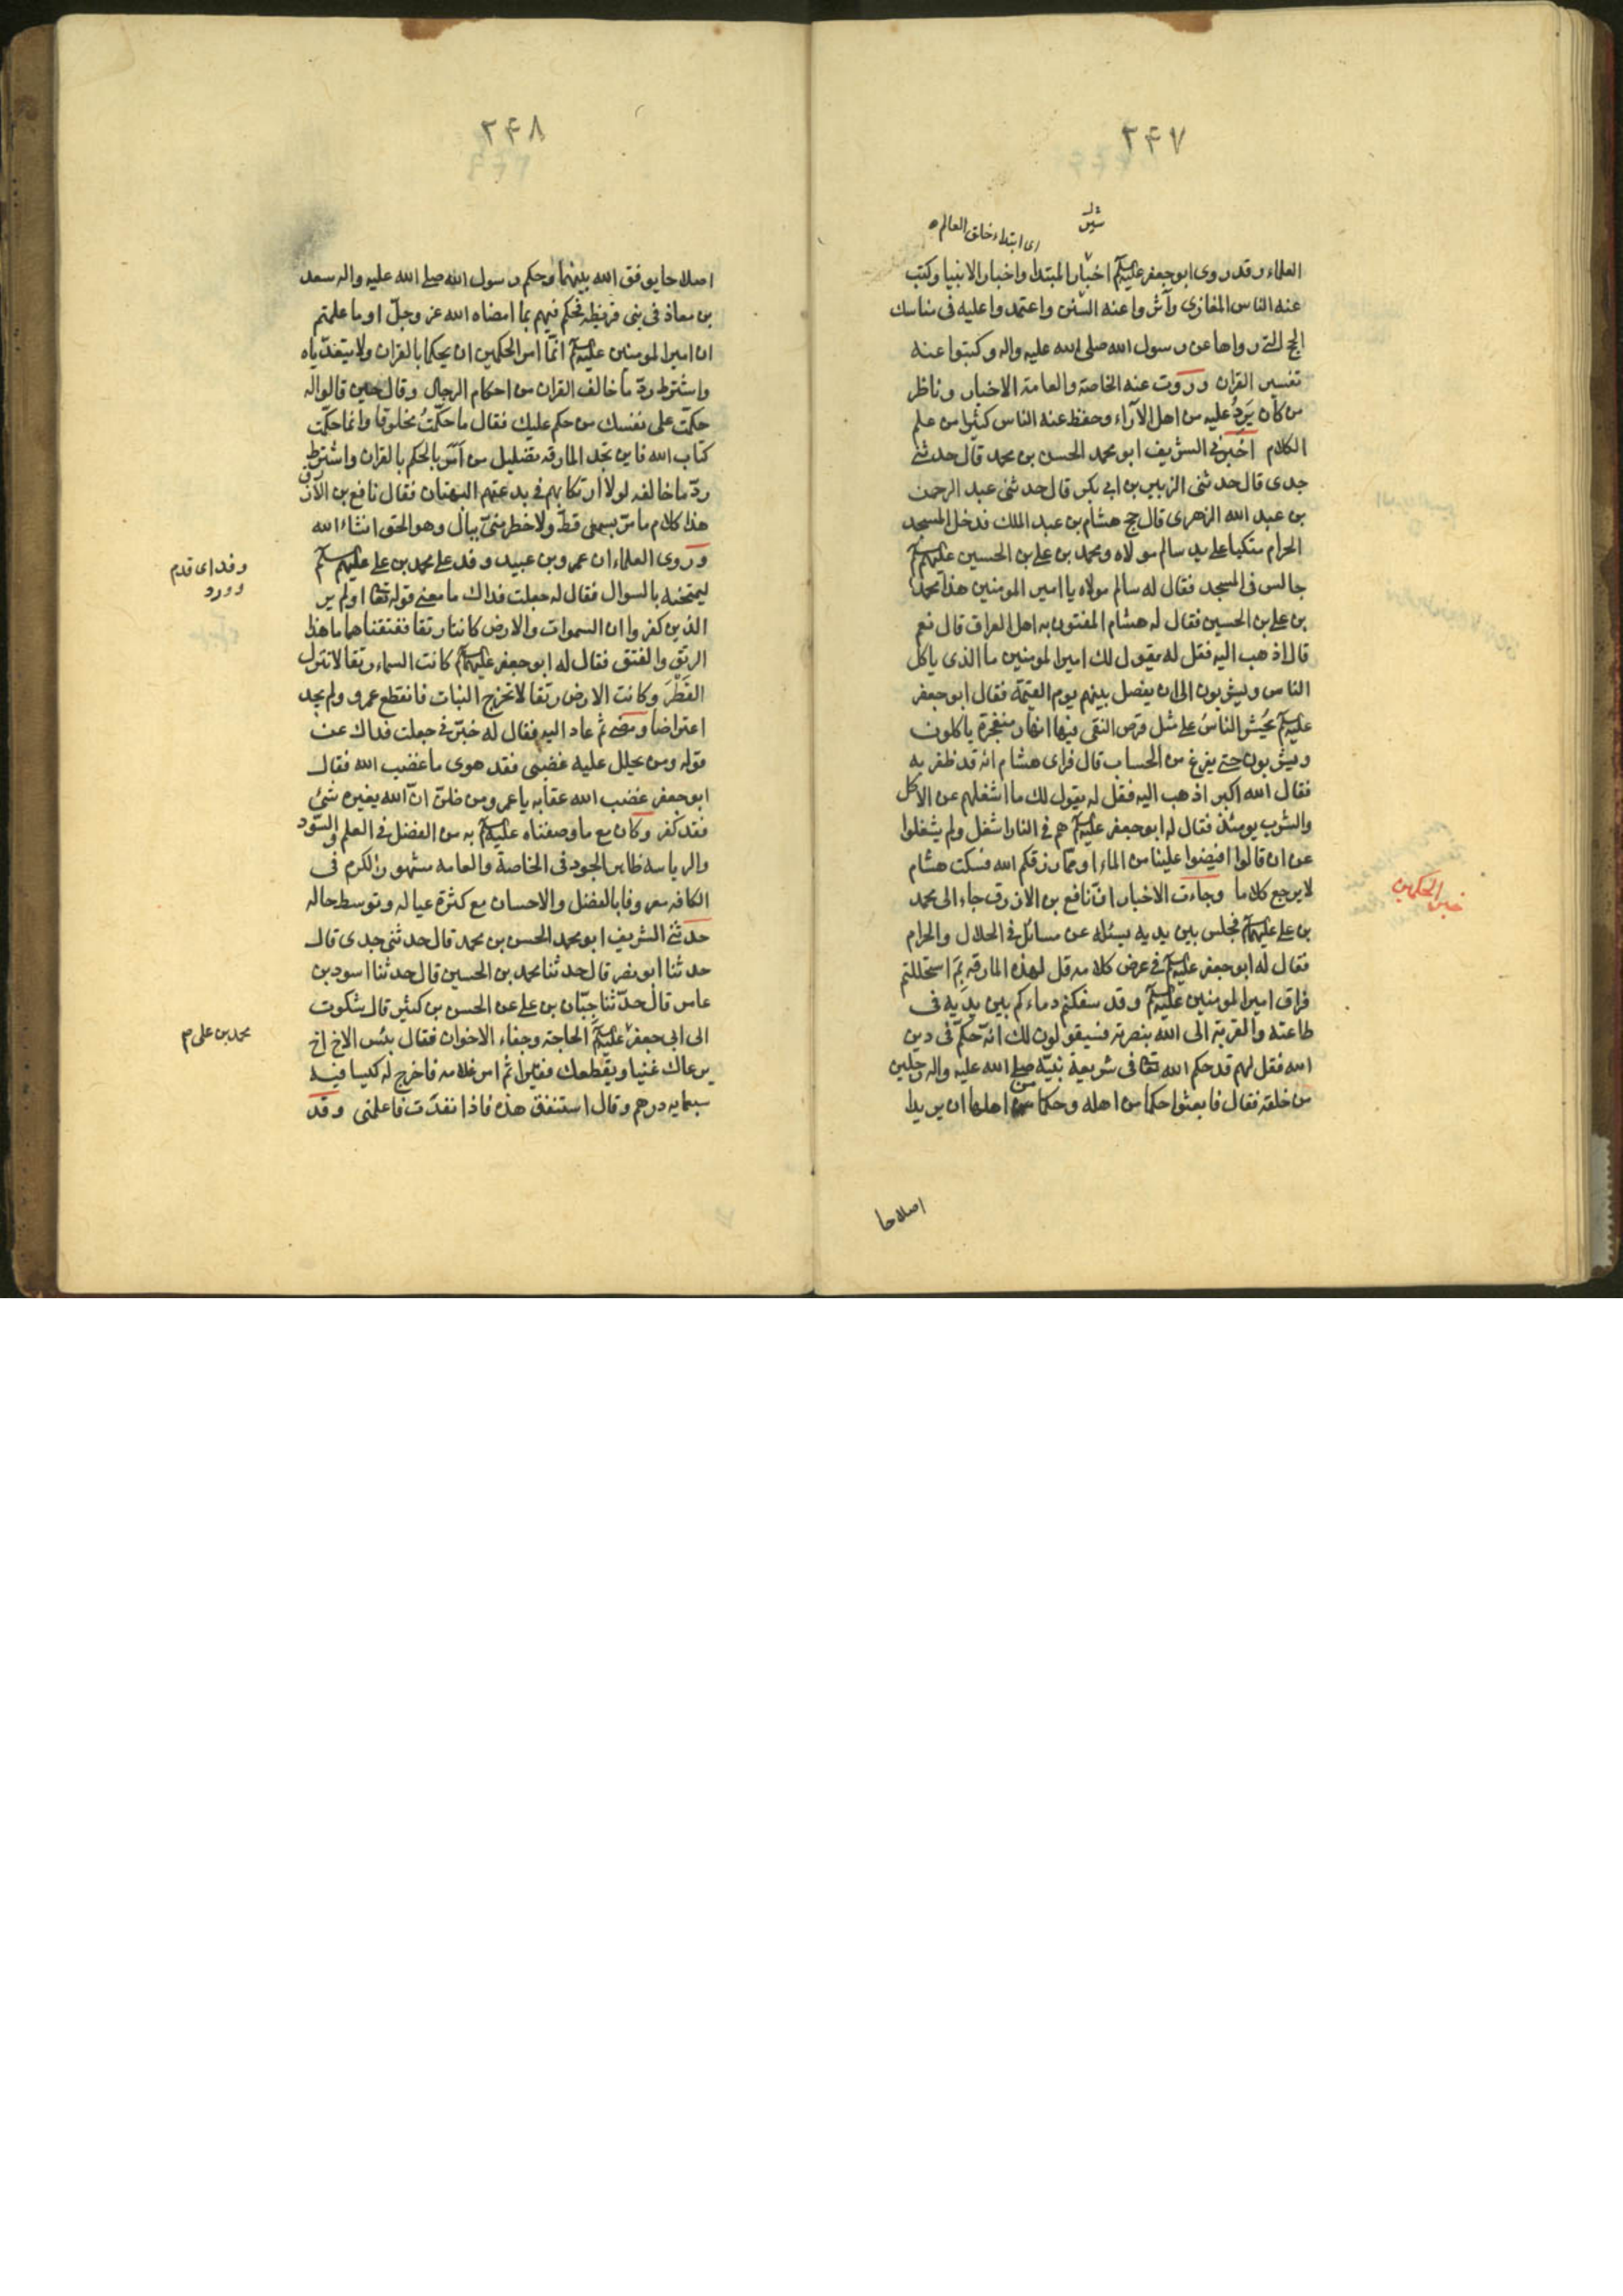 ۲۴۷
اى ابتداء خلق العالم
العلماء وقد روى ابو جعفر عليه السلم اخبار المبتدا واخبار الانبيا وكتب
عنه الناس المغازى واثروا عنه السنن واعتمدوا عليه فى مناسك
الحج التى رواها عن رسول الله صلى الله عليه واله وكتبوا عنه
تفسير القران وروت عنه الخاصة والعامة الاخبار وناظر
من كان يَرِدُ عليه من اهل الآراء وحفظ عنه الناس كثيرا من علم
الكلام اخبرنى الشريف ابو محمد الحسن بن محمد قال حدثنى
جدى قال حدثنى الزبير بن ابى بكر قال حدثنى عبد الرحمن
بن عبد الله الزهرى قال حج هشام بن عبد الملك فدخل المسجد
الحرام متكيا على يد سالم مولاه ومحمد بن على بن الحسين عليهم السلم
جالس فى المسجد فقال له سالم مولاه يا امير المومنين هذا محمد
بن على بن الحسين فقال له هشام المفتون به اهل العراق قال نعم
قال اذهب اليه فقل له يقول لك امير المومنين ما الذى ياكل
الناس ويشربون الى ان يفصل بينهم يوم القيمة فقال ابو جعفر
عليه السلم يُحشر الناسُ على مثل قرص النقى فيها انهار منفجرة ياكلون
ويشربون حتى يفرغ من الحساب قال فراى هشام انه قد ظفر به
فقال الله اكبر اذهب اليه فقل له يقول لك ما اشغلهم عن الاكل
والشرب يومئذ فقال له ابو جعفر عليه السلم هم فى النار اشغل ولم يشغلوا
عن ان قالوا افيضوا علينا من الماء او مما رزقكم الله فسكت هشام
لا يرجع كلاما وجاءت الاخبار ان نافع بن الازرق جاء الى محمد
خبر الحكمين
بن على عليهما السلم فجلس بين يديه يسئله عن مسائل فى الحلال والحرام
فقال له ابو جعفر عليه السلم فى عرض كلامه قل لهذه المارقه بِمَ استحللتم
فراق امير المومنين عليه السلم وقد سفكتم دماءكم بين يديه فى
طاعته والقربة الى الله بنصرته فسيقولون لك انه حكّم فى دين
الله فقل لهم قد حكم الله تعا فى شريعة نبيّه صلى الله عليه واله رجلين
من خلقه فقال فابعثوا حكما من اهله وحكما من اهلها ان يريدا
اصلاحا
۲۴۸
اصلاحا يوفق الله بينهما وحكم رسول الله صلى الله عليه واله سعد
بن معاذ فى بنى قريظه فحكم فيهم بما امضاه الله عز وجلّ اوما علمتم
ان امير المومنين عليه السلم انمّا امر الحكمين ان يحكما بالقران ولا يتعدّياه
واشترط ردّ ما خالف القران من احكام الرجال وقال حين قالوا له
حكّمت على نفسك من حكم عليك فقال ما حكّمتُ مخلوقا وانما حكّمت
كتاب الله فاين تجد المارقه تضليل من امر بالحكم بالقران واشترط
ردّ ما خالفه لولا ارتكابهم فى بدعتهم البهتان فقال نافع بن الازرق
هذا كلام ما مرّ بسمعى قطّ ولا خطر منىّ ببال وهو الحق انشاء الله
وروى العلماء ان عمرو بن عبيد وفد على محمد بن على عليهم السلم
وفد اى قدم
وورد
ليمتحنه بالسوال فقال له جعلت فداك ما معنى قوله تعا اولم ير
الذين كفروا ان السموات والارض كانتا رتقا ففتقناهما ما هذا
الرتق والفتق فقال له ابو جعفر عليهما السلم كانت السماء رتقا لا تنزل
القَطْرَ وكانت الارض رتقا لا تخرج النبات فانقطع عمرو ولم يجد
اعتراضا ومضى ثم عاد اليه فقال له خبّرنى جعلت فداك عن
قوله ومن يحلل عليه غضبى فقد هوى ما غضب الله فقال
ابو جعفر غضب الله عقابه يا عمرو ومن ظنّ انّ الله يغيره شئ
فقد كفر وكان مع ما وصفناه عليه السلم به من الفضل فى العلم والسّودد
والرياسه ظاهر الجود فى الخاصة والعامه مشهور الكرم فى
الكافه معروفا بالفضل والاحسان مع كثرة عياله وتوسط حاله
حدثنى الشريف ابو محمد الحسن بن محمد قال حدثنى جدى قال
حدثنا ابو نصر قال حدثنا محمد بن الحسين قال حدثنا اسود بن
عامر قال حدّثنا حِبّان بن على عن الحسن بن كثير قال شكوت
الى ابى جعفر عليه السلم الحاجة وجفاء الاخوان فقال بئس الاخ اخ
محمد بن على م
يرعاك غنيا ويقطعك فقيرا ثم امر غلامه فاخرج له كيسا فيه
سبعمايه درهم وقال استنفق هذه فاذا نفدَت فاعلمنى وقد